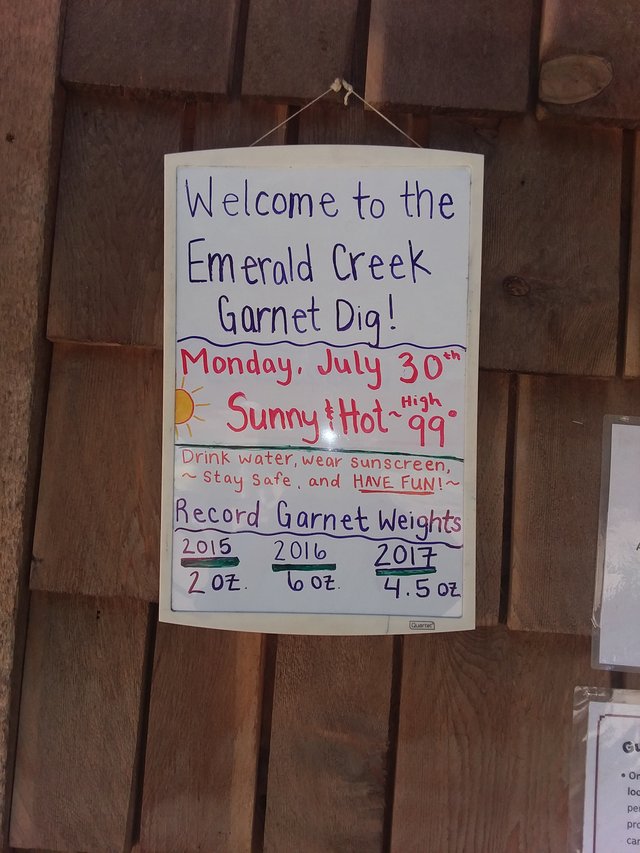 Welcome to the
Emerald Creek
Garnet Dig!
Monday, July 30th
Sunny & Hot ~ High 99°
Drink water, wear sunscreen,
~ Stay safe, and HAVE FUN! ~
Record Garnet Weights
2015 2016 2017
2 oz. 6 oz. 4.5 oz
Quartet
Gu
• On
loc
per
pro
can